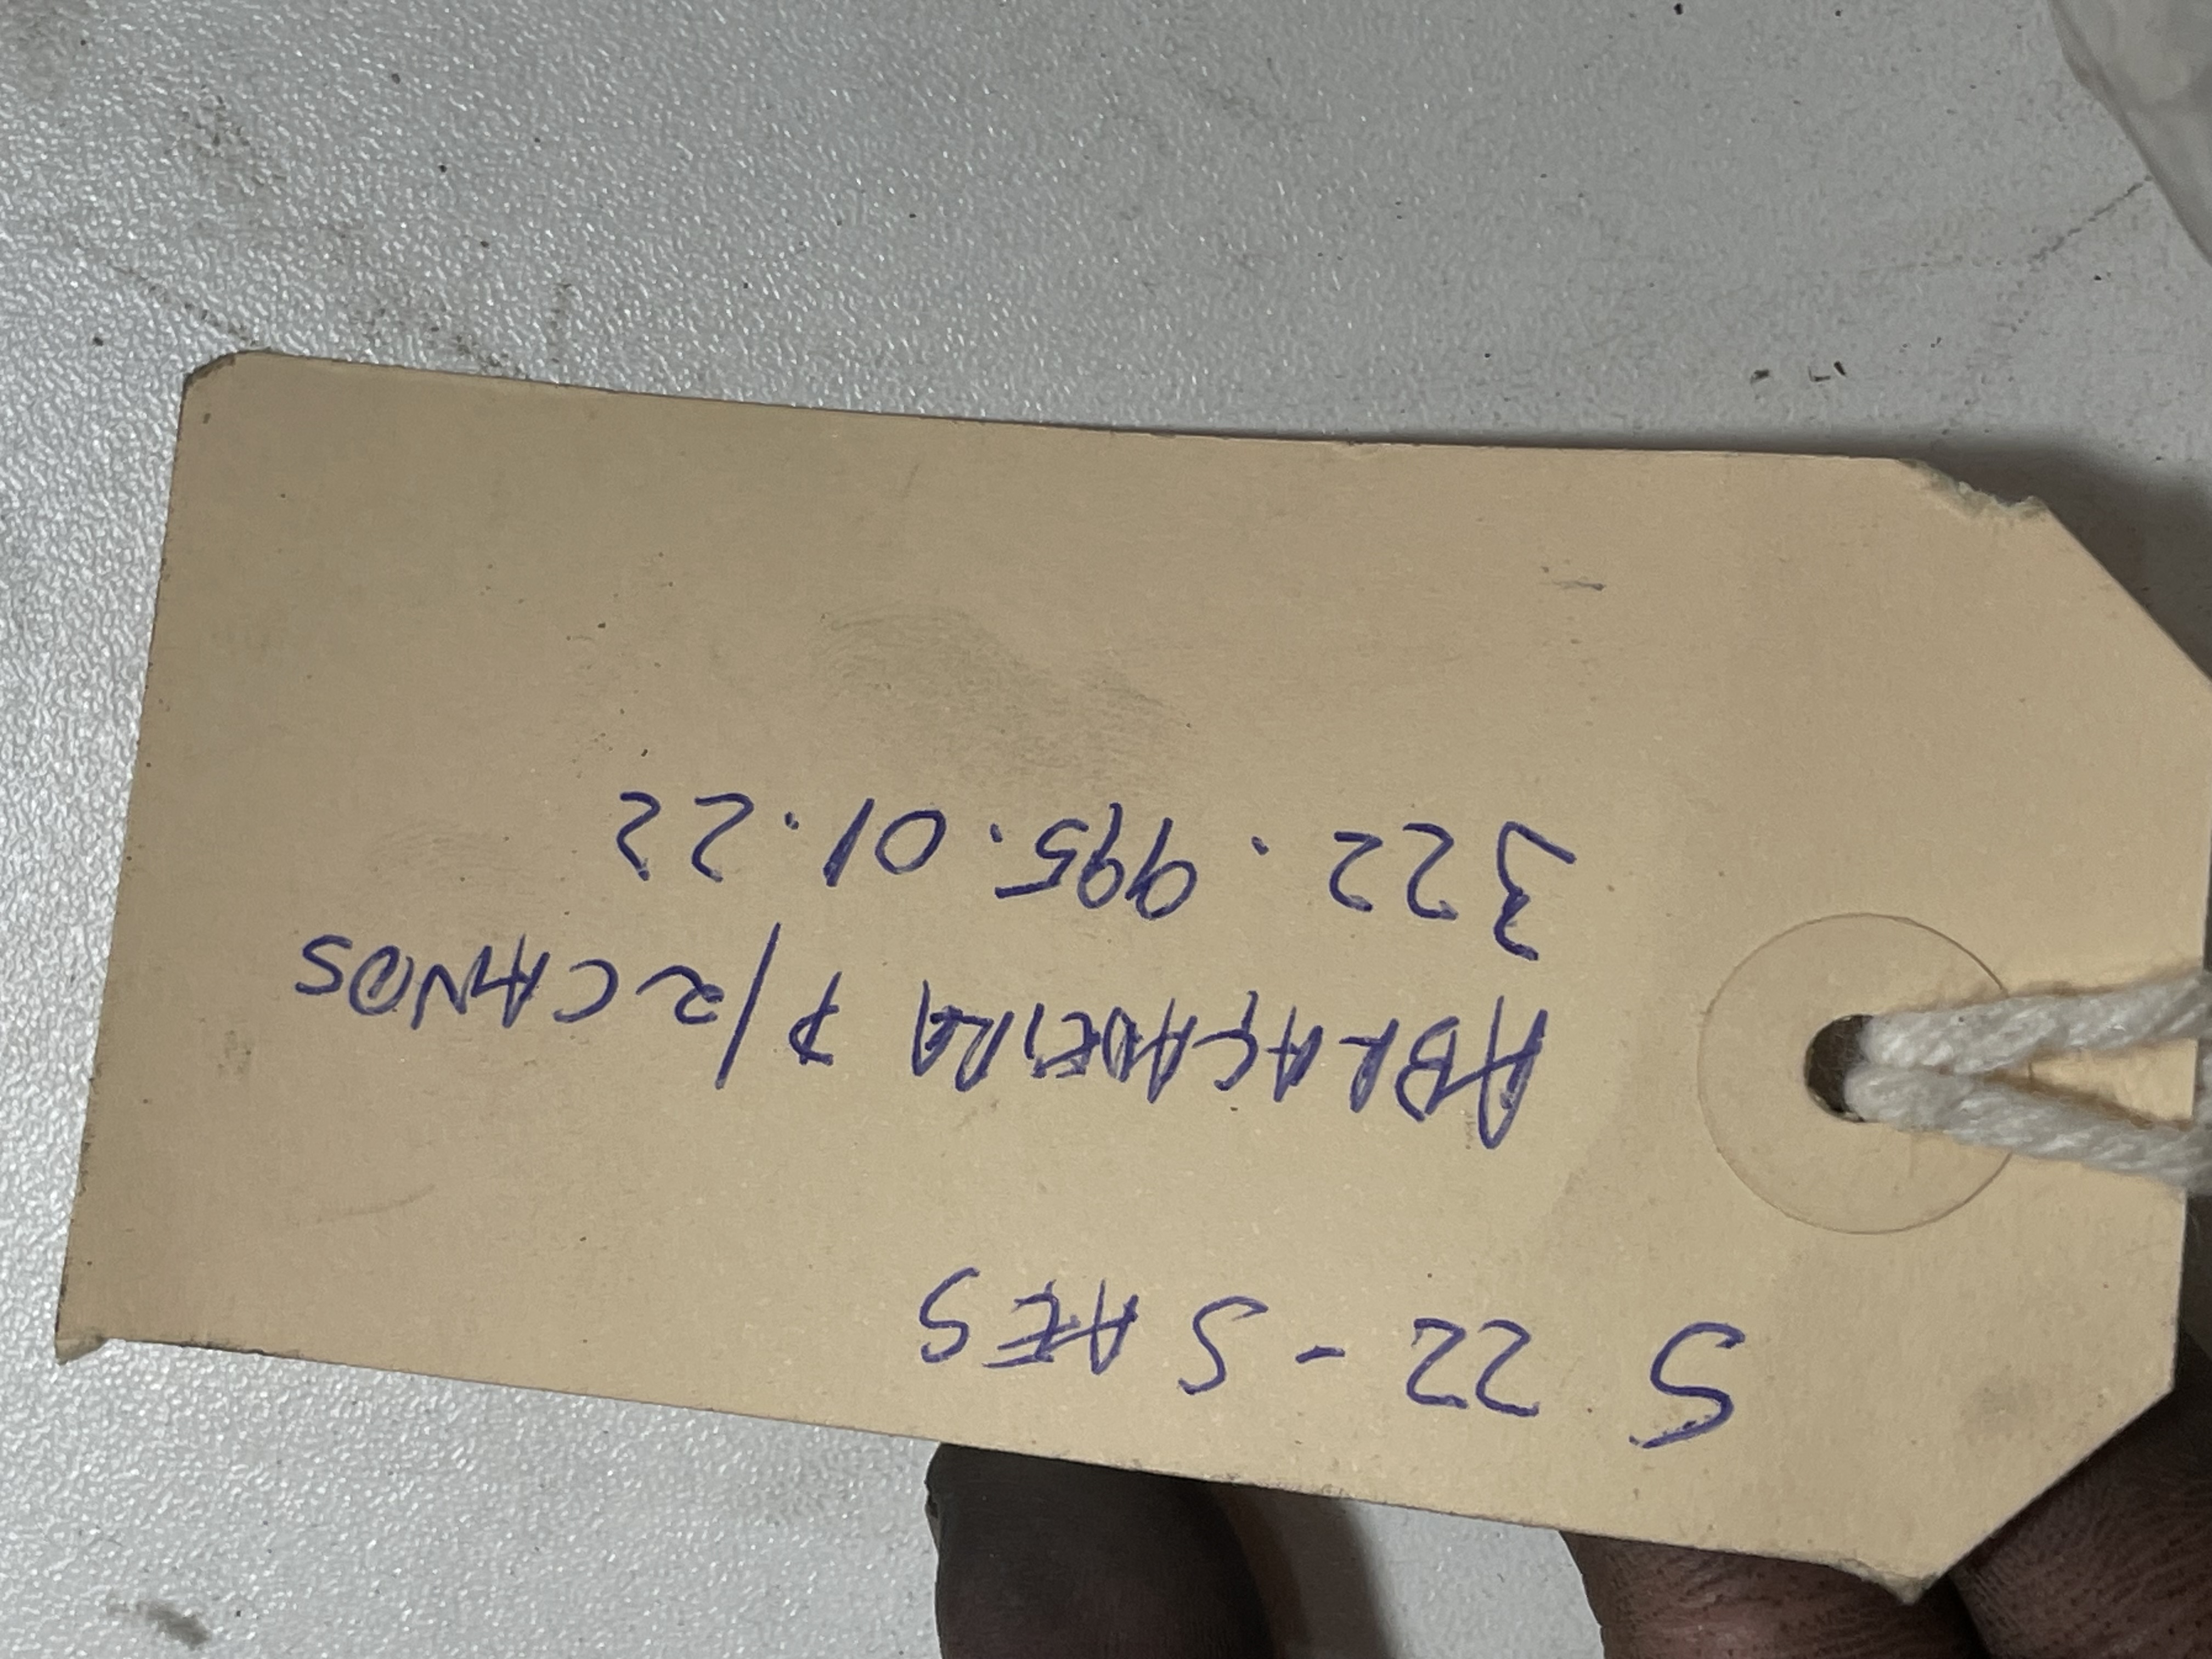 S 22 - S AES
ABRAÇADEIRA P/2 CANOS
322.995.01.22